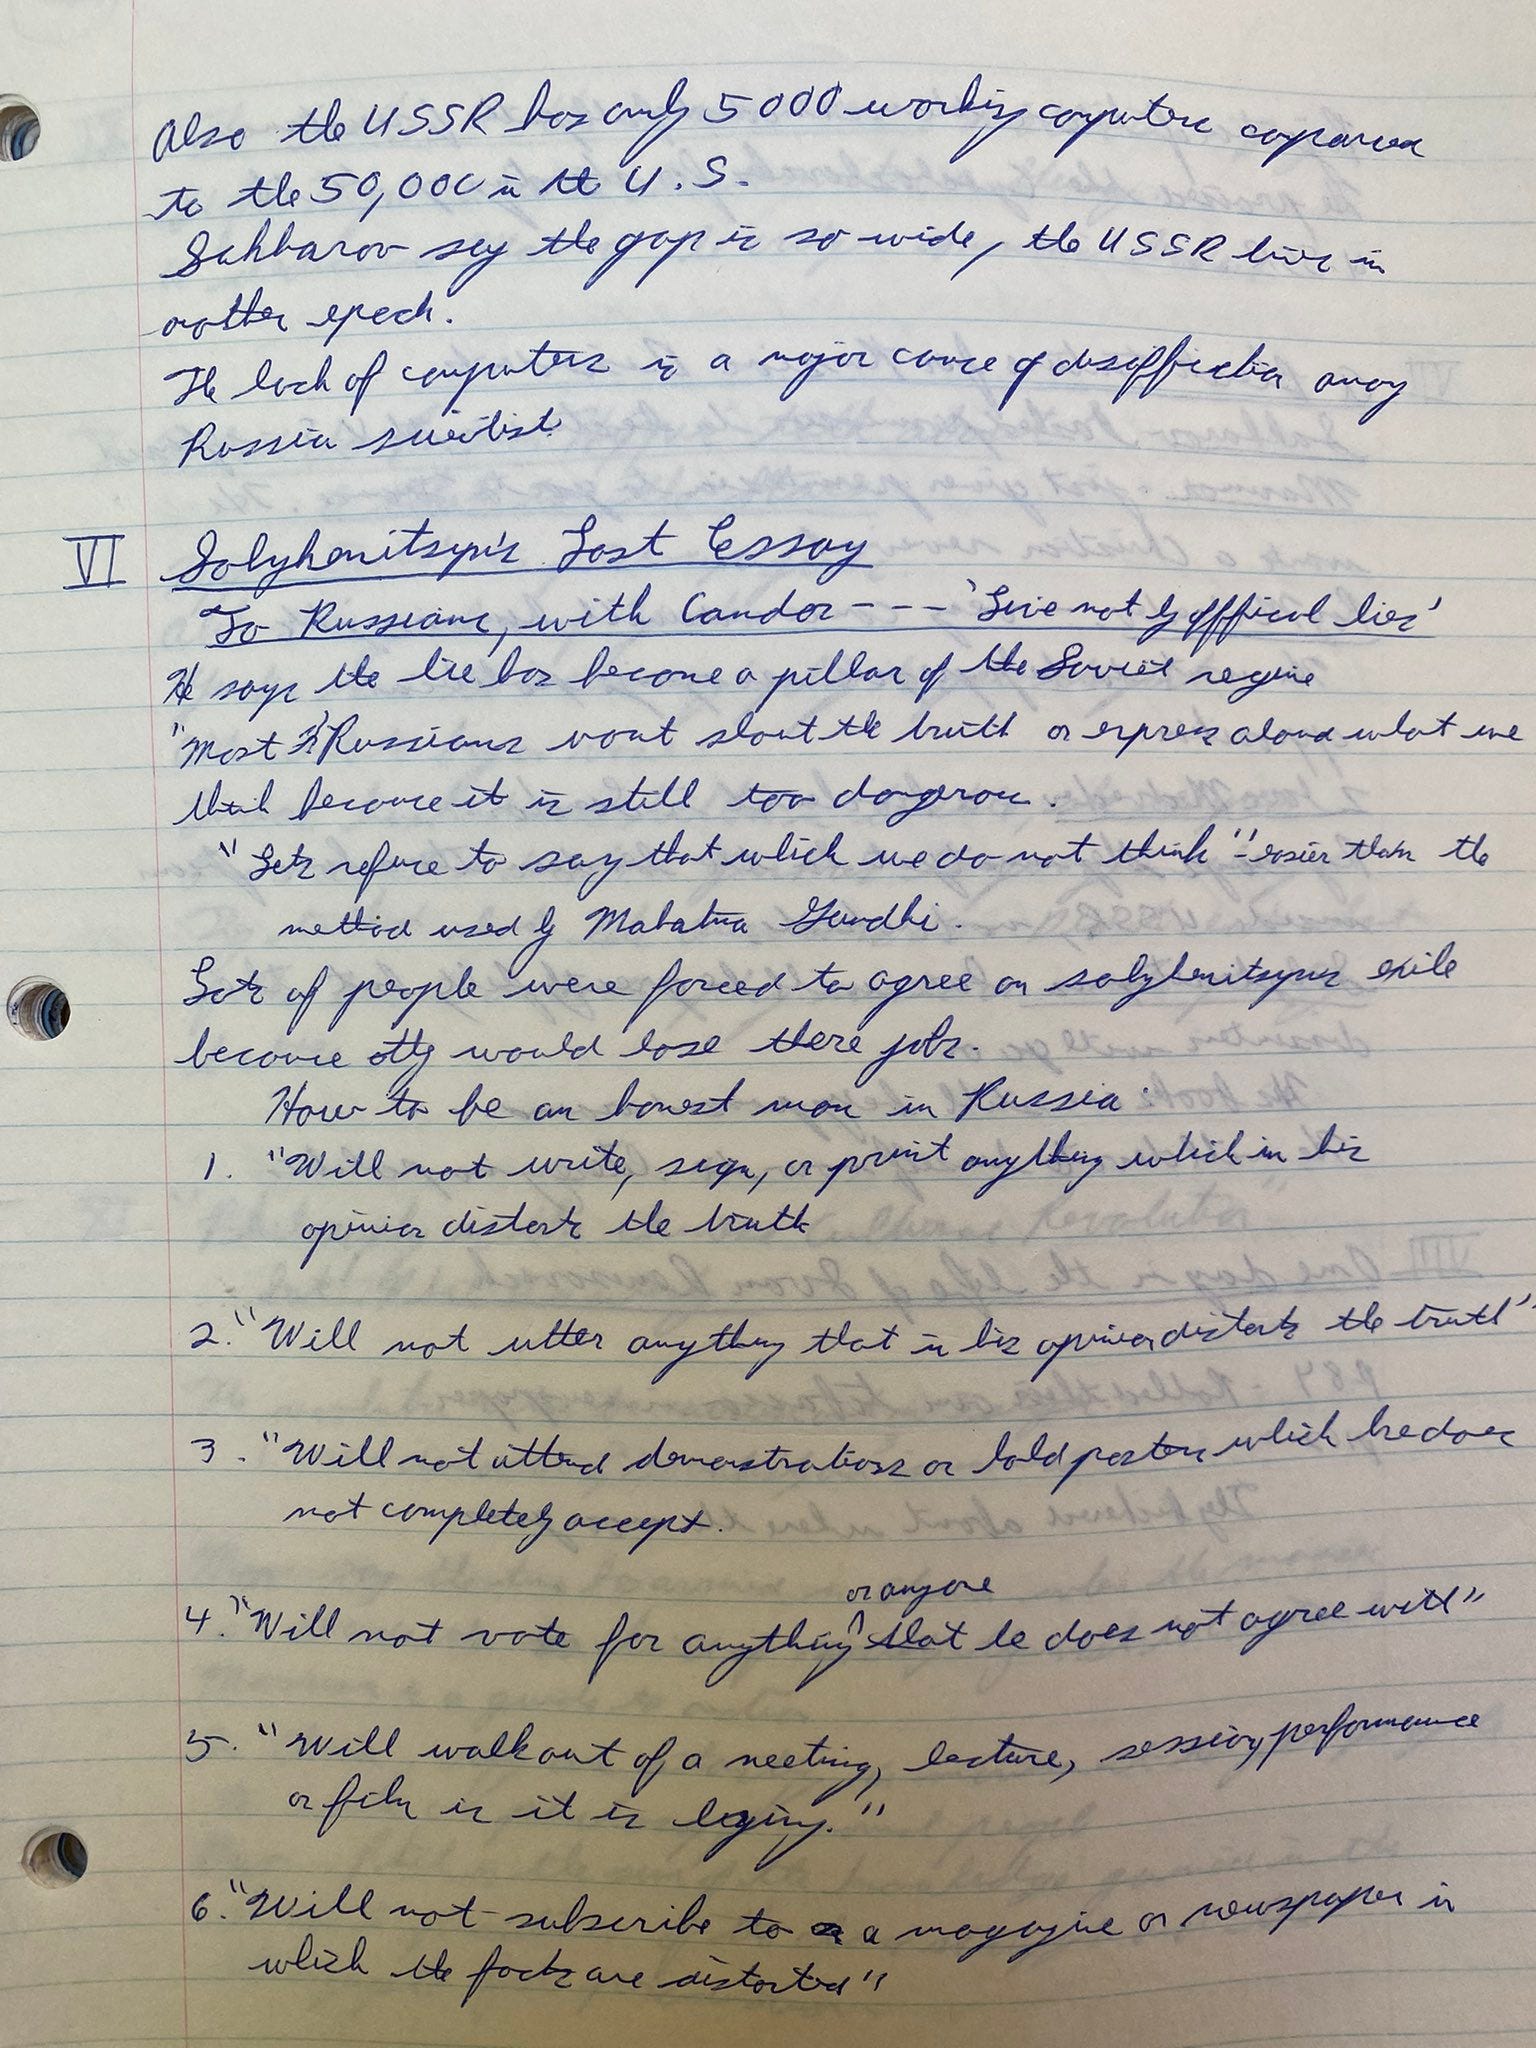 Also the USSR has only 5000 working computers compared
to the 50,000 in the U.S.
Sahharov say the gap is so wide, the USSR live in
another epoch.
The lack of computers is a major cause of disaffection among
Russia scientist
VI Solyhenitsyn's Last Essay
To Russians, with Candor --- 'Live not by official lies'
He says the lie has become a pillar of the Soviet regime
"Most Russians wont shout the truth or express aloud what we
think because it is still too dangerous.
"Lets refuse to say that which we do not think" - easier than the
method used by Mahatma Gandhi.
Lots of people were forced to agree on solyhenitsyns exile
because they would lose there jobs.
How to be an honest man in Russia:
1. "Will not write, sign, or print anything which in his
opinion distorts the truth
2. "Will not utter anything that in his opinion distorts the truth"
3. "Will not attend demonstrations or hold posters which he does
not completely accept.
or anyone
4. "Will not vote for anything that he does not agree with"
5. "Will walk out of a meeting, lecture, session, performance
or film is it is lying."
6. "Will not subscribe to a magazine or newspaper in
which the facts are distorted"